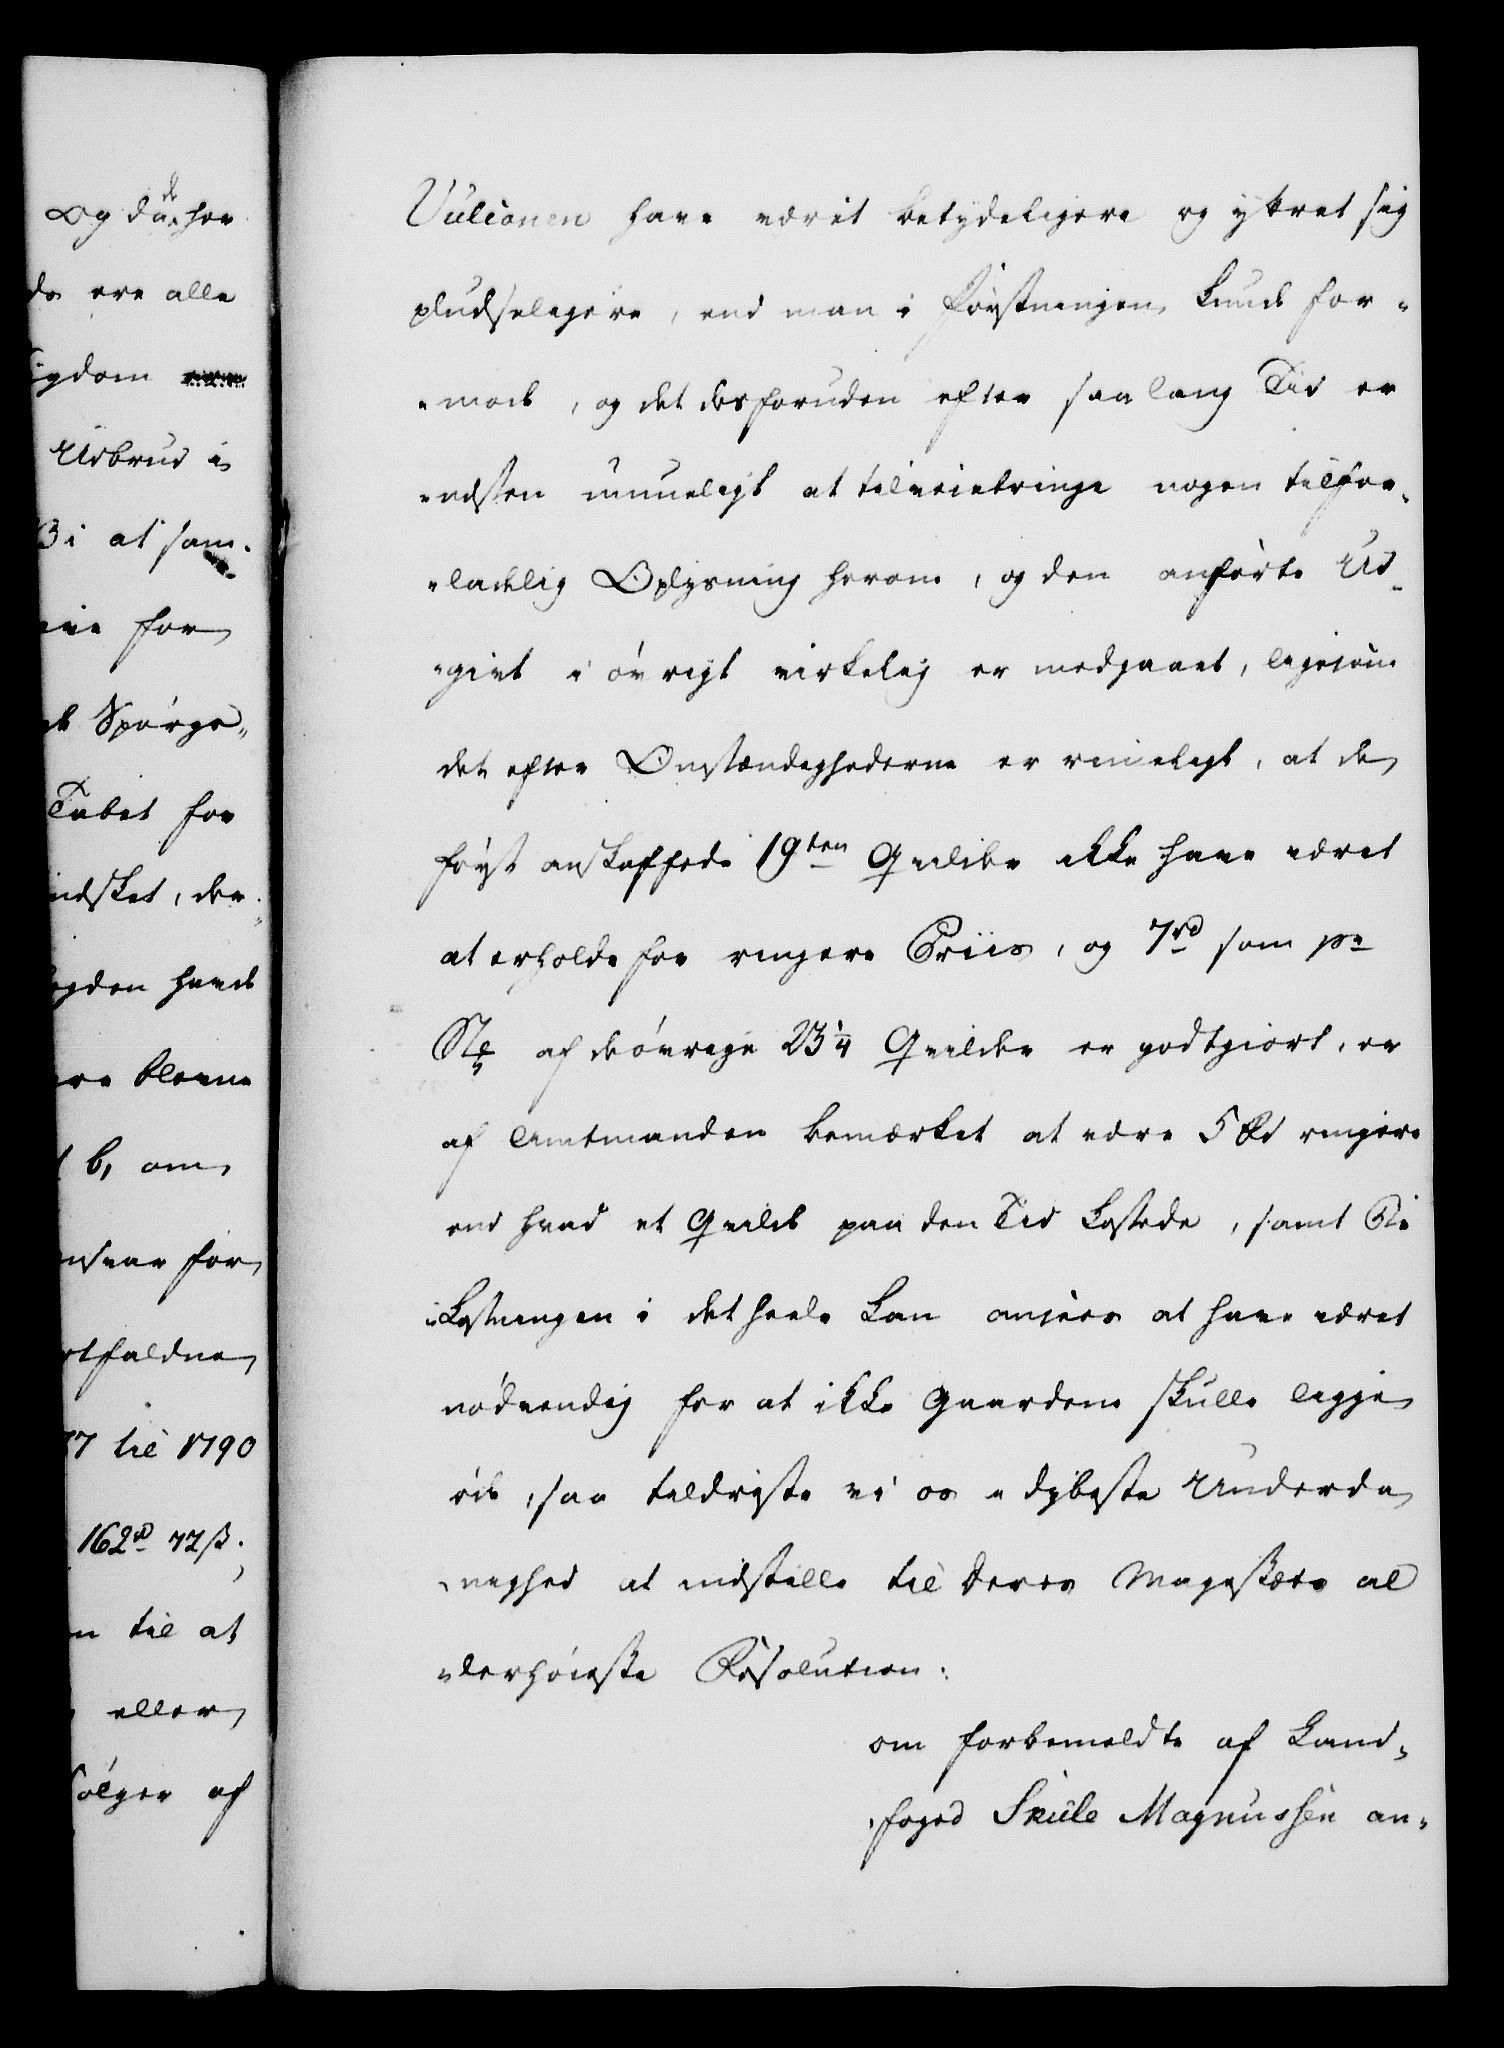 Og da de her
ds ere alle
igdom
Udbrud i
3 i at sam-
for
Spørgs„
Tabet for
indsket, der„
havde
bleven
b, om
nsvar for
rtfaldne
77 til 1790
162 rd 72 ß.
n til at
eller
følger af
Vulcanen have værit betydeligere og yttret sig
pludseligere, end man i Førstningen kunde for-
„mode, og det desforuden efter saa lang Tid er
næsten umueligt at tilveiebringe nogen tilfor„
„ladelig Oplysning herom, og den anførte Ud-
„givt i øvrigt virkelig er medgaaet, ligesom
det efter Omstændighederne er rimeligt, at de
først anskaffede 19ten Qvilder ikke have været
at erholde for ringere Priis, og 7 rd som pr
Stk af de øvrige 23 1/4 Qvilder er godtgiort, er
af Amtmanden bemærket at være 5 Rd ringere
end hvad et Qvilde paa den Tid kostede, samt Be
„kostningen i det heele kan ansees at have været
nødvendig for at ikke Gaardene skulle ligge
øde, saa tildriste vi os i dybeste Underda
„nighed at indstille til Deres Majestæts al
„lerhøieste Resolution:
om forbemeldte af Land„
„foged Skule Magnussen an„